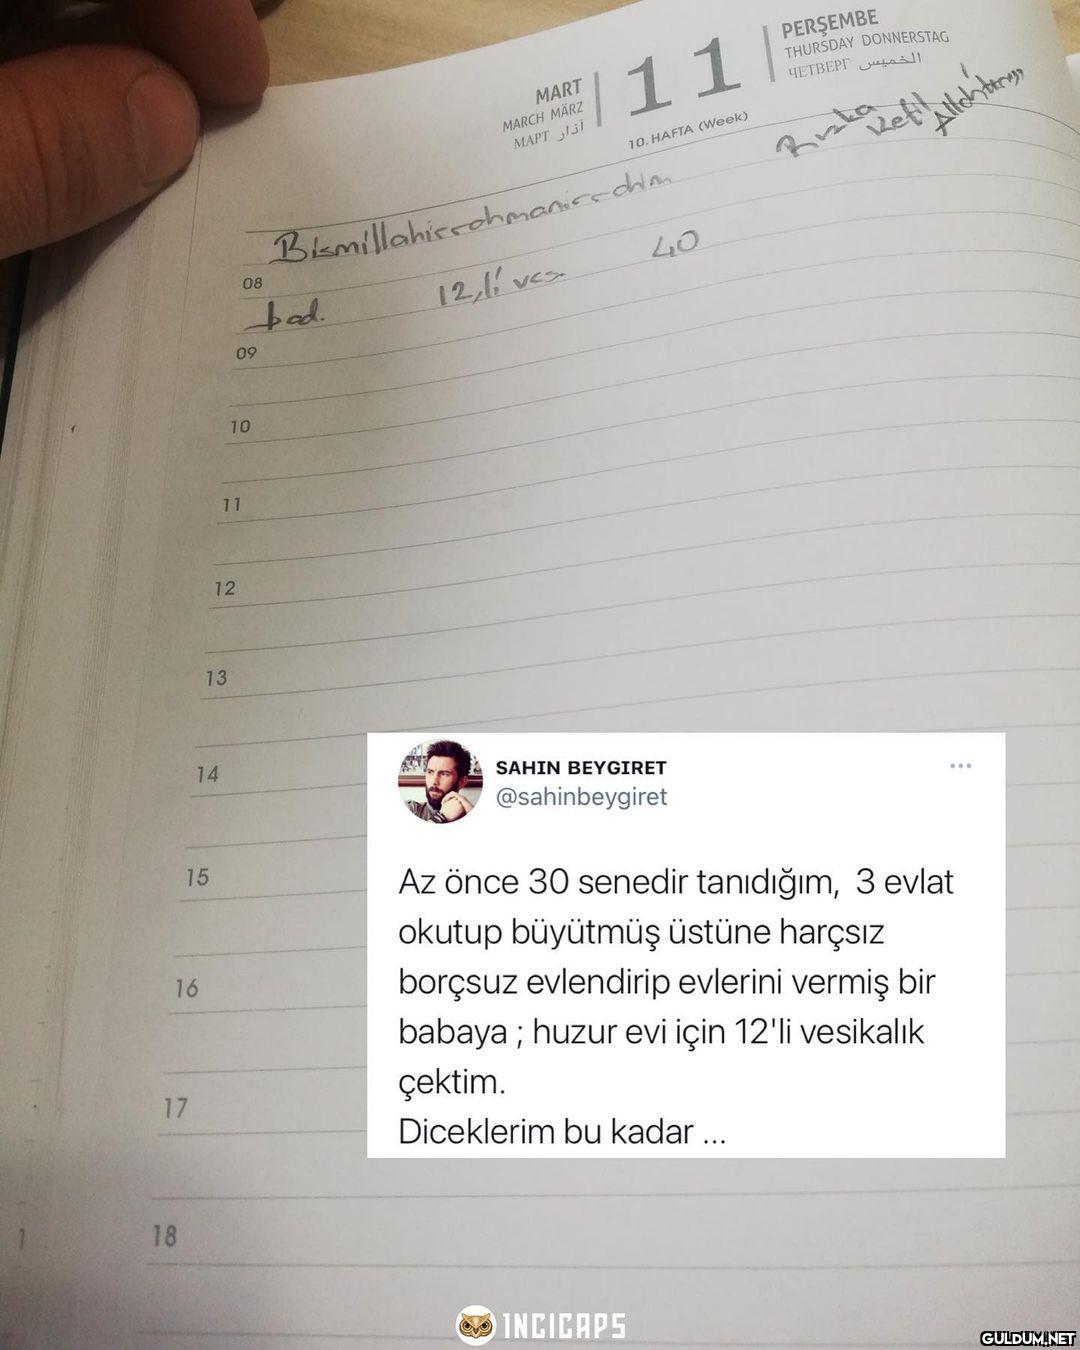 MART
MARCH MÄRZ
МАРТ آذار
11
10. HAFTA (Week)
PERŞEMBE
THURSDAY DONNERSTAG
ЧЕТВЕРГ الخميس
Rızka
Kefil
Allah'tır
Bismillahirrahmanirrahim
08
bad. 12,li ves 40
09
10
11
12
13
14
15
16
17
18
1
SAHIN BEYGIRET
@sahinbeygiret
Az önce 30 senedir tanıdığım, 3 evlat
okutup büyütmüş üstüne harçsız
borçsuz evlendirip evlerini vermiş bir
babaya ; huzur evi için 12'li vesikalık
çektim.
Diceklerim bu kadar ...
1NCICAPS
GULDUM.NET